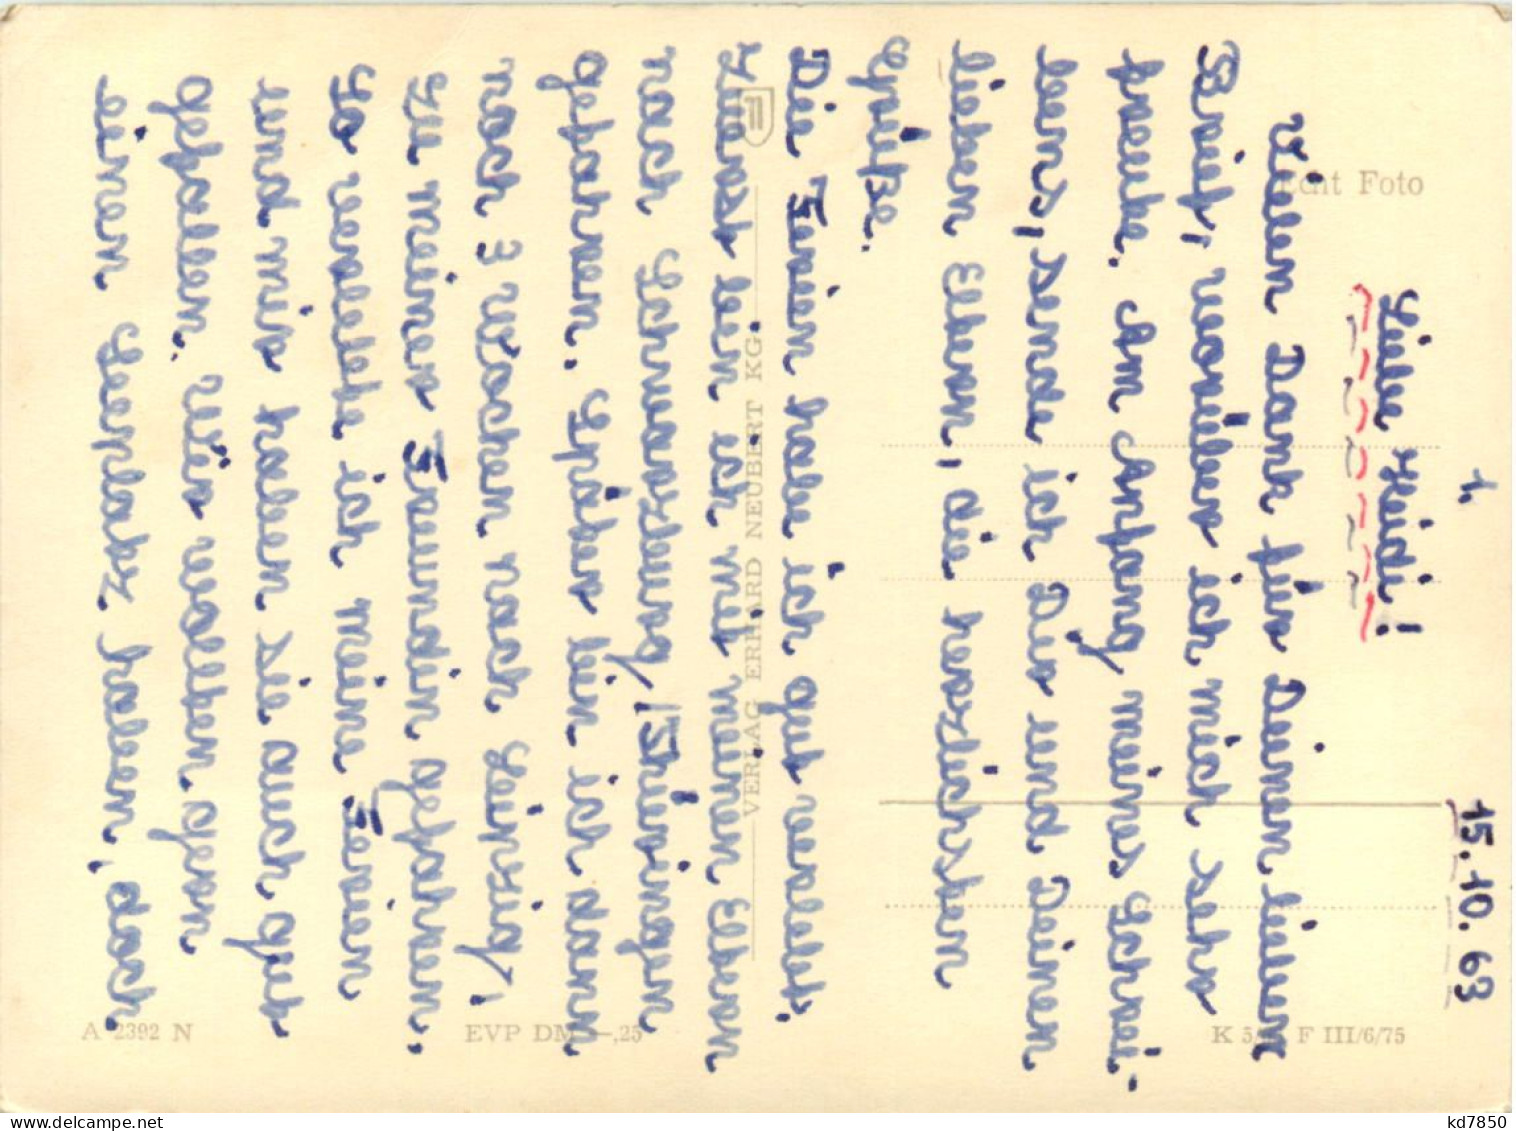 1.
15.10.63
Liebe Heidi!
Vielen Dank für Deinen lieben
Brief, worüber ich mich sehr
freute. Am Anfang meines Schrei-
bens, sende ich Dir und Deinen
lieben Eltern, die herzlichsten
Grüße.
Die Ferien habe ich gut verlebt.
Zuerst bin ich mit meinen Eltern
nach Schwarzburg/Thüringen
gefahren. Später bin ich dann
noch 3 Wochen nach Leipzig,
zu meiner Freundin gefahren.
So verlebte ich meine Ferien
und mir haben sie auch gut
gefallen. Wir wollten gern
einen Seeplatz haben, doch
Echt Foto
VERLAG ERHARD NEUBERT KG.
A 2392 N
EVP DM —,25
K 5/ F III/6/75
kd7850